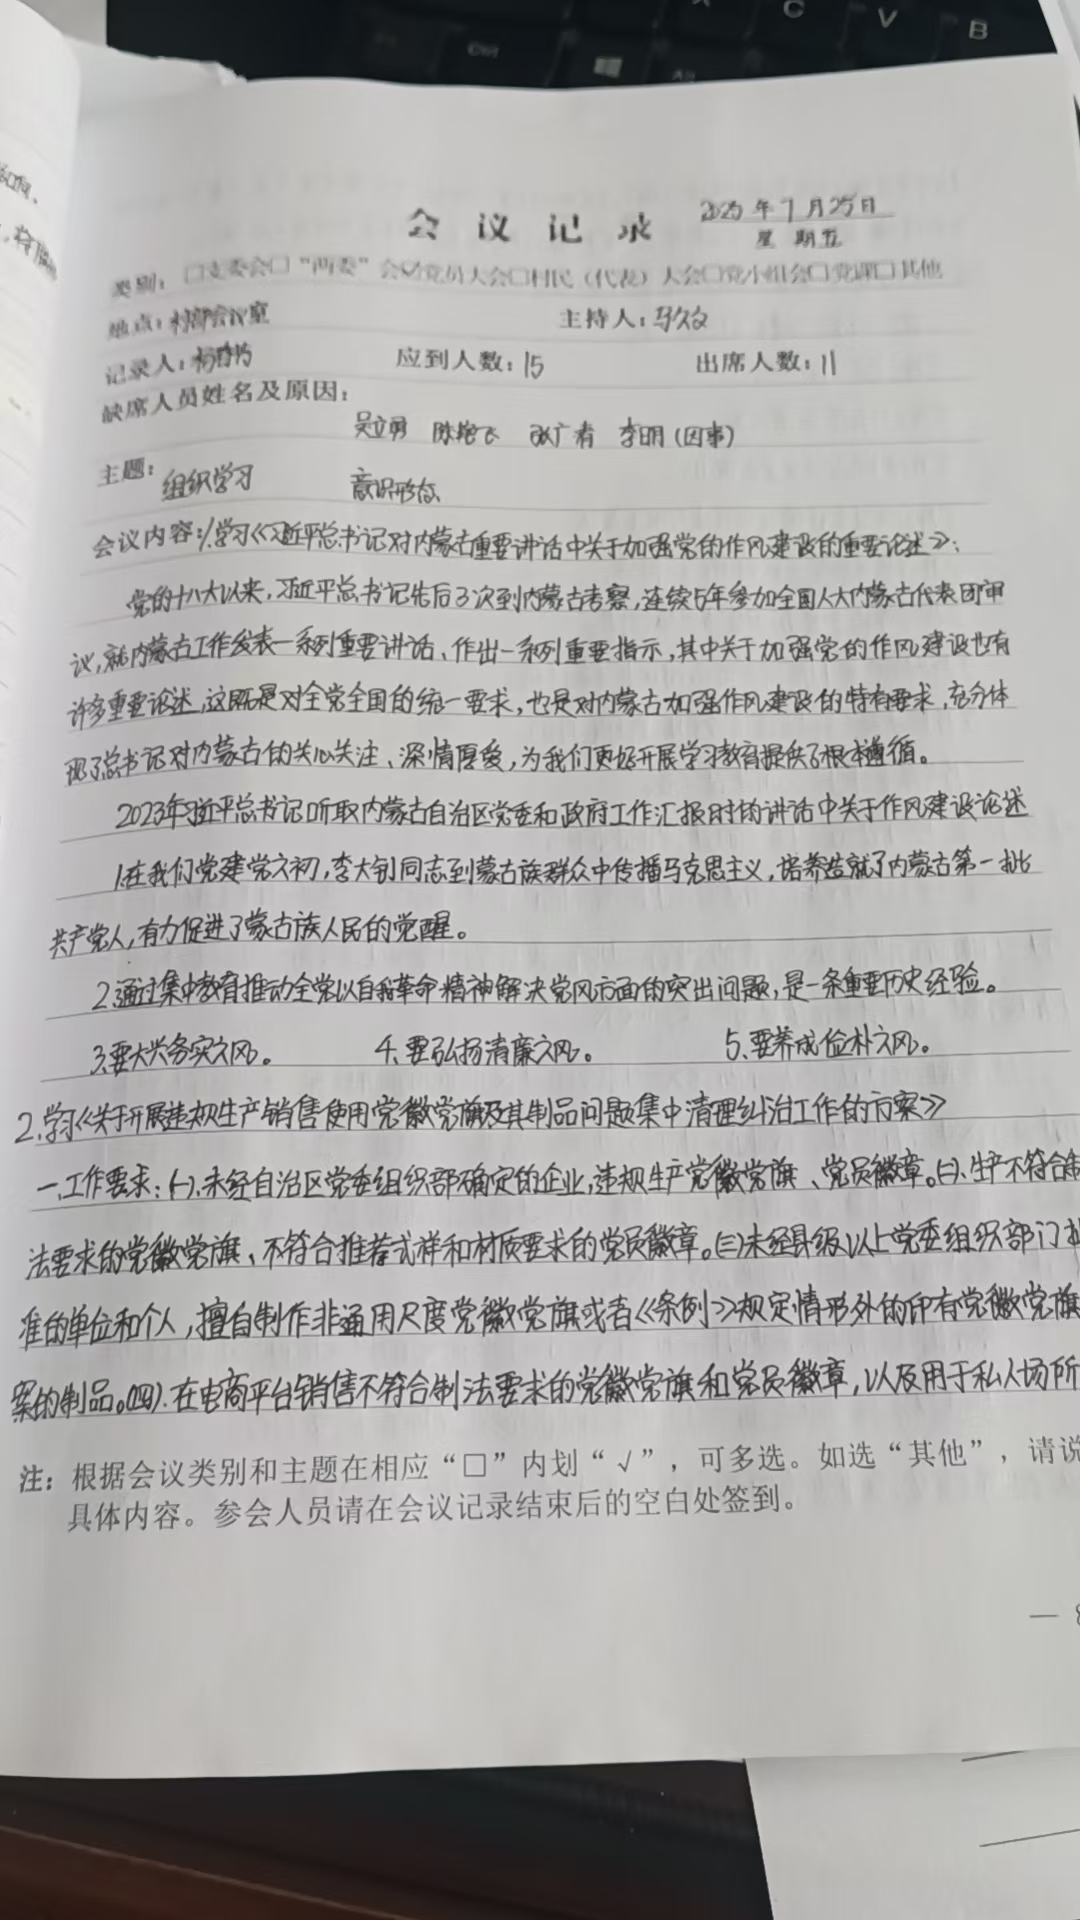 会议记录
2025年7月25日
星期五
类别：□支委会□“两委”会☑党员大会□村民（代表）大会□党小组会□党课□其他
地点：村部会议室 主持人：马久文
记录人： 应到人数：15 出席人数：11
缺席人员姓名及原因：
吴立勇 陈艳飞 张广青 李明（因事）
主题：组织学习 意识形态
会议内容：1.学习《习近平总书记对内蒙古重要讲话中关于加强党的作风建设的重要论述》：
党的十八大以来，习近平总书记先后3次到内蒙古考察，连续5年参加全国人大内蒙古代表团审
议，就内蒙古工作发表一系列重要讲话、作出一系列重要指示，其中关于加强党的作风建设也有
许多重要论述，这既是对全党全国的统一要求，也是对内蒙古加强作风建设的特有要求，充分体
现了总书记对内蒙古的关心关注、深情厚爱，为我们更好开展学习教育提供了根本遵循。
2023年习近平总书记听取内蒙古自治区党委和政府工作汇报时的讲话中关于作风建设论述
1.在我们党建党之初，李大钊同志到蒙古族群众中传播马克思主义，培养造就了内蒙古第一批
共产党人，有力促进了蒙古族人民的觉醒。
2.通过集中教育推动全党以自我革命精神解决党风方面的突出问题，是一条重要历史经验。
3.要大兴务实之风。 4.要弘扬清廉之风。 5.要养成俭朴之风。
2.学习《关于开展违规生产销售使用党徽党旗及其制品问题集中清理纠治工作的方案》
一.工作要求：(一).未经自治区党委组织部确定的企业，违规生产党徽党旗、党员徽章。(二).生产不符合制
法要求的党徽党旗、不符合推荐式样和材质要求的党员徽章。(三)未经县级以上党委组织部门批
准的单位和个人，擅自制作非通用尺度党徽党旗或者《条例》规定情形外的印有党徽党旗
案的制品。(四).在电商平台销售不符合制法要求的党徽党旗和党员徽章，以及用于私人场所
注：根据会议类别和主题在相应“□”内划“√”，可多选。如选“其他”，请说
具体内容。参会人员请在会议记录结束后的空白处签到。